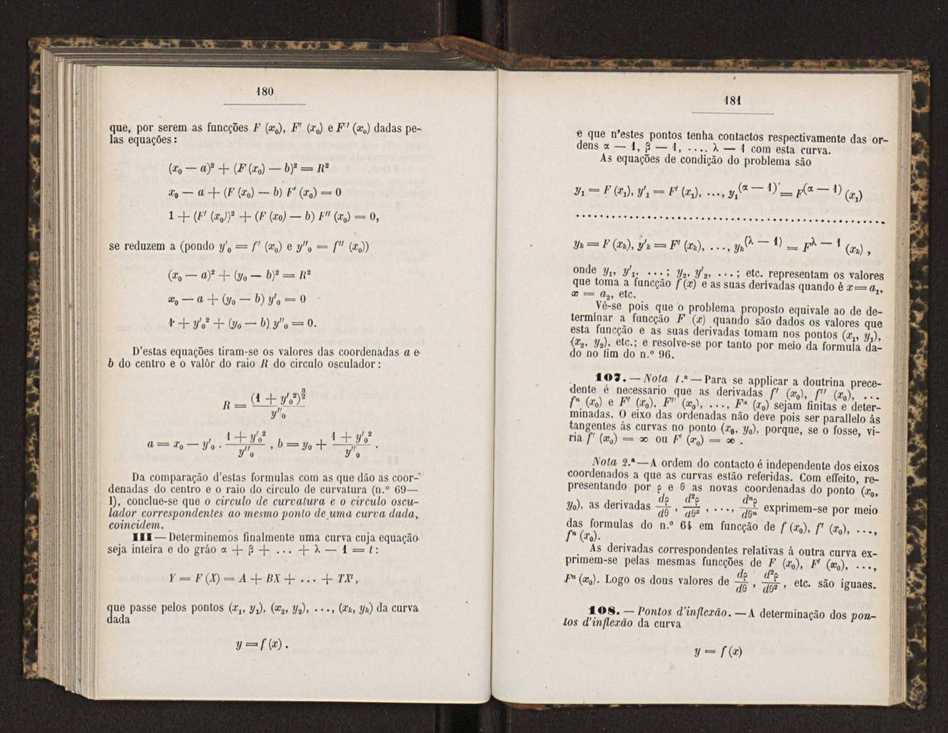 180
que, por serem as funcções F (x₀), F′ (x₀) e F″ (x₀) dadas pe-
las equações:
(x₀ — a)² + (F (x₀) — b)² = R²
x₀ — a + (F (x₀) — b) F′ (x₀) = 0
1 + (F′ (x₀))² + (F (x₀) — b) F″ (x₀) = 0,
se reduzem a (pondo y′₀ = f′ (x₀) e y″₀ = f″ (x₀))
(x₀ — a)² + (y₀ — b)² = R²
x₀ — a + (y₀ — b) y′₀ = 0
1 + y′₀² + (y₀ — b) y″₀ = 0.
D'estas equações tiram-se os valores das coordenadas a e
b do centro e o valôr do raio R do circulo osculador:
R = (1 + y′₀²)^(3/2) / y″₀
a = x₀ — y′₀ . (1 + y′₀²) / y″₀ , b = y₀ + (1 + y′₀²) / y″₀ .
Da comparação d'estas formulas com as que dão as coor-
denadas do centro e o raio do circulo de curvatura (n.º 69—
I), conclue-se que o circulo de curvatura e o circulo oscu-
lador correspondentes ao mesmo ponto de uma curva dada,
coincidem.
III — Determinemos finalmente uma curva cuja equação
seja inteira e do gráo α + β + ... + λ — 1 = t:
Y = F (X) = A + BX + ... + TXᵗ,
que passe pelos pontos (x₁, y₁), (x₂, y₂), ..., (xₖ, yₖ) da curva
dada
y = f (x) .
181
e que n'estes pontos tenha contactos respectivamente das or-
dens α — 1, β — 1, .... λ — 1 com esta curva.
As equações de condição do problema são
y₁ = F (x₁), y′₁ = F′ (x₁), ..., y₁^(α — 1) = F^(α — 1) (x₁)
................................................
yₖ = F (xₖ), y′ₖ = F′ (xₖ), ..., yₖ^(λ — 1) = F^(λ — 1) (xₖ) ,
onde y₁, y′₁, ...; y₂, y′₂, ...; etc. representam os valores
que toma a funcção f (x) e as suas derivadas quando é x = a₁,
x = a₂, etc.
Vê-se pois que o problema proposto equivale ao de de-
terminar a funcção F (x) quando são dados os valores que
esta funcção e as suas derivadas tomam nos pontos (x₁, y₁),
(x₂, y₂), etc.; e resolve-se por tanto por meio da formula da-
do no fim do n.º 96.
107. — Nota 1.ª — Para se applicar a doutrina prece-
dente é necessario que as derivadas f′ (x₀), f″ (x₀), ...
fⁿ (x₀) e F′ (x₀), F″ (x₀), ..., Fⁿ (x₀) sejam finitas e deter-
minadas. O eixo das ordenadas não deve pois ser parallelo ás
tangentes ás curvas no ponto (x₀, y₀), porque, se o fosse, vi-
ria f′ (x₀) = ∞ ou F′ (x₀) = ∞ .
Nota 2.ª — A ordem do contacto é independente dos eixos
coordenados a que as curvas estão referidas. Com effeito, re-
presentando por ρ e θ as novas coordenadas do ponto (x₀,
y₀), as derivadas dρ/dθ , d²ρ/dθ² , ..., dⁿρ/dθⁿ exprimem-se por meio
das formulas do n.º 61 em funcção de f (x₀), f′ (x₀), ...,
fⁿ (x₀).
As derivadas correspondentes relativas á outra curva ex-
primem-se pelas mesmas funcções de F (x₀), F′ (x₀), ...,
Fⁿ (x₀). Logo os dous valores de dρ/dθ , d²ρ/dθ² , etc. são iguaes.
108. — Pontos d'inflexão. — A determinação dos pon-
tos d'inflexão da curva
y = f (x)